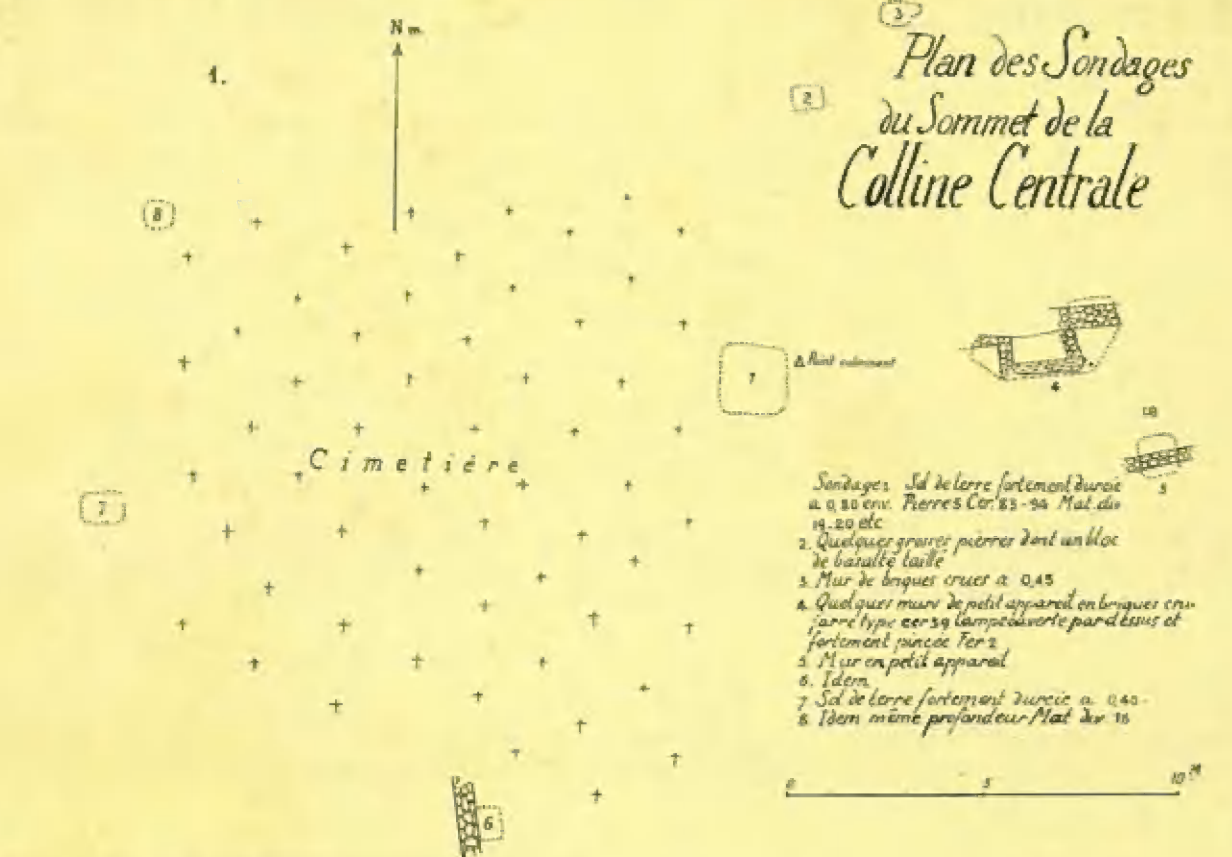 1.
N m.
3
Plan des Sondages
du Sommet de la
Colline Centrale
2
8
1
Point culminant
4
Cimetière
7
5
Sondages Sol de terre fortement durcie
a 0,80 env. Pierre 5 Cer. 83-94 Mat. div
19-20 etc
2. Quelques grosses pierres dont un bloc
de basalte taillé
3. Mur de briques crues a 0,45
4. Quelques murs de petit appareil en briques cru
jarre type cer 39 lampe ouverte par dessus et
fortement pincée Fer 2
5. Mur en petit appareil
6. Idem
7 Sol de terre fortement durcie a 0,40
8 Idem même profondeur Mat div 18
0 5 10 M
6